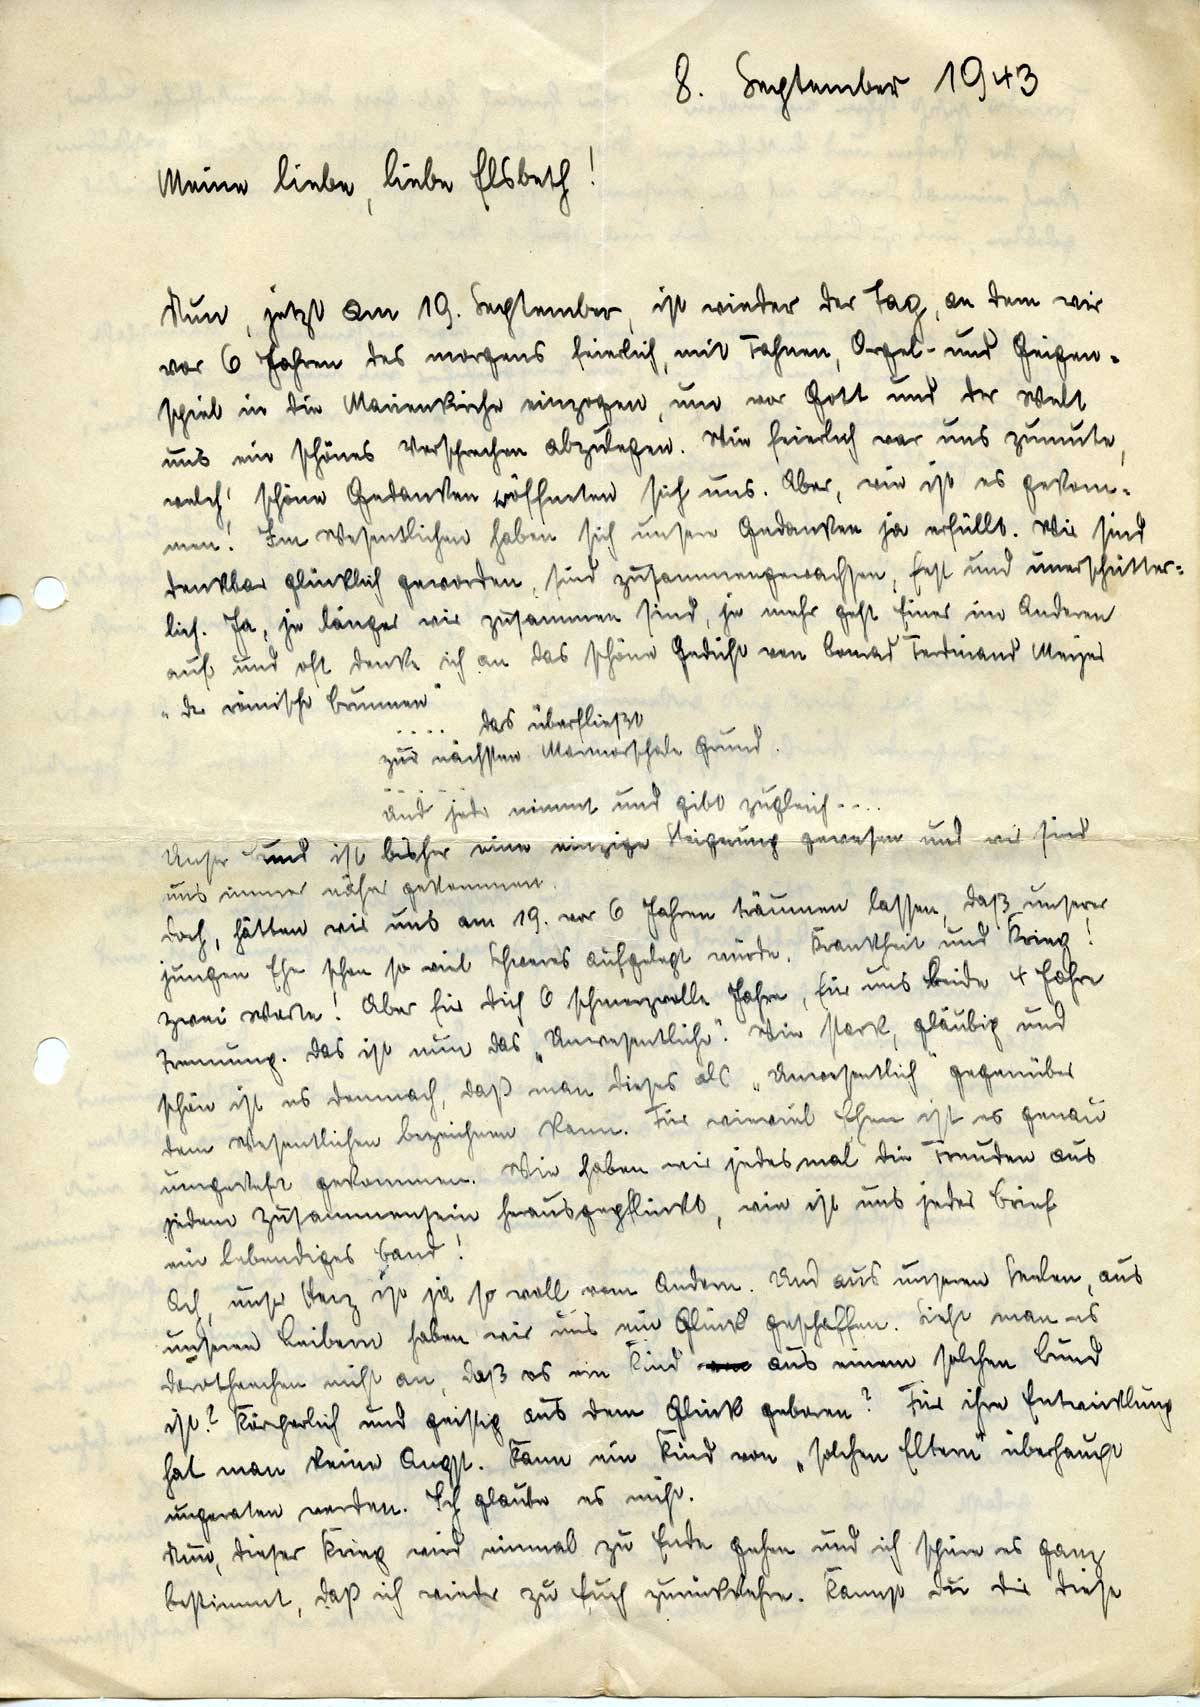 8. September 1943
Meine liebe, liebe Elsbeth!
Nun, jetzt am 19. September, ist wieder der Tag, an dem wir
vor 6 Jahren des morgens feierlich, mit Fahnen, Orgel- und Geigen=
spiel in die Marienkirche einzogen, um vor Gott und der Welt
uns ein schönes Versprechen abzulegen. Wie feierlich war uns zumute,
welch' schöne Gedanken eröffneten sich uns. Aber, wie ist es gekom=
men! Im Wesentlichen haben sich unsere Gedanken ja erfüllt. Wir sind
denkbar glücklich geworden, sind zusammengewachsen, fest und unerschütter=
lich. Ja, je länger wir zusammen sind, je mehr geht Einer im Anderen
auf und oft denke ich an das schöne Gedicht von Conrad Ferdinand Meyer
„der römische Brunnen"
.... das überfließt
zur nächsten Marmorschale Grund.
......
und jede nimmt und gibt zugleich ....
Unser Bund ist bisher eine einzige Steigerung gewesen und wir sind
uns immer näher gekommen.
Doch, hätten wir uns am 19. vor 6 Jahren träumen lassen, daß unserer
jungen Ehe schon so viel Schweres aufgelegt würde. Krankheit und Krieg!
zwei Worte! Aber für Dich 6 schmerzvolle Jahre, für uns beide 4 Jahre
Trennung. Das ist nun das „Unwesentliche". Wie stark, gläubig und
schön ist es demnach, daß man dieses als „Unwesentlich" gegenüber
dem Wesentlichen bezeichnen kann. Für wieviel Ehen ist es genau
umgekehrt gekommen. Wie haben wir jedesmal die Freuden aus
jedem Zusammensein herausgepflückt, wie ist uns jeder Brief
ein lebendiges Band!
Ach, unser Herz ist ja so voll vom Andern. Und aus unseren Seelen, aus
unseren Leibern haben wir uns ein Glück geschaffen. Sieht man es
Dorotheachen nicht an, daß es ein Kind aus einem solchen Bund
ist? Körperlich und geistig aus dem Glück geboren? Für ihre Entwicklung
hat man keine Angst. Kann ein Kind von „solchen Eltern" überhaupt
ungeraten werden. Ich glaube es nicht.
Nun, dieser Krieg wird einmal zu Ende gehen und ich spüre es ganz
bestimmt, daß ich wieder zu Euch zurückkehre. Kannst du dir diese